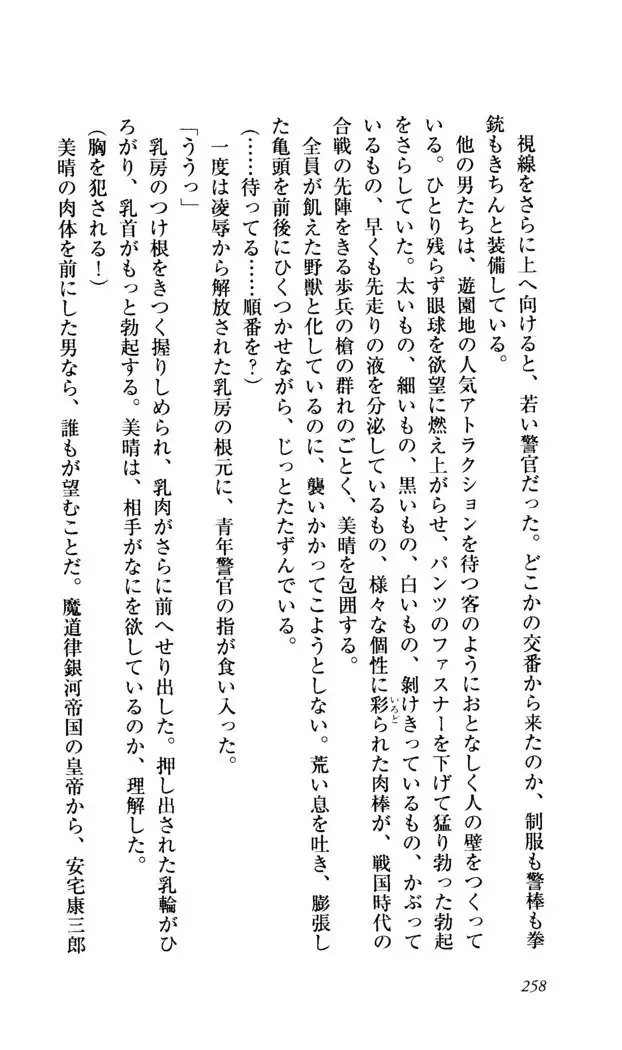 視線をさらに上へ向けると、若い警官だった。どこかの交番から来たのか、制服も警棒も拳
銃もきちんと装備している。
他の男たちは、遊園地の人気アトラクションを待つ客のようにおとなしく人の壁をつくって
いる。ひとり残らず眼球を欲望に燃え上がらせ、パンツのファスナーを下げて猛り勃った勃起
をさらしていた。太いもの、細いもの、黒いもの、白いもの、剝けきっているもの、かぶって
いるもの、早くも先走りの液を分泌しているもの、様々な個性に彩られた肉棒が、戦国時代の
いろど
合戦の先陣をきる歩兵の槍の群れのごとく、美晴を包囲する。
全員が飢えた野獣と化しているのに、襲いかかってこようとしない。荒い息を吐き、膨張し
た亀頭を前後にひくつかせながら、じっとたたずんでいる。
(……待ってる……順番を?)
一度は凌辱から解放された乳房の根元に、青年警官の指が食い入った。
「ううっ」
乳房のつけ根をきつく握りしめられ、乳肉がさらに前へせり出した。押し出された乳輪がひ
ろがり、乳首がもっと勃起する。美晴は、相手がなにを欲しているのか、理解した。
(胸を犯される!)
美晴の肉体を前にした男なら、誰もが望むことだ。魔道律銀河帝国の皇帝から、安宅康三郎
258